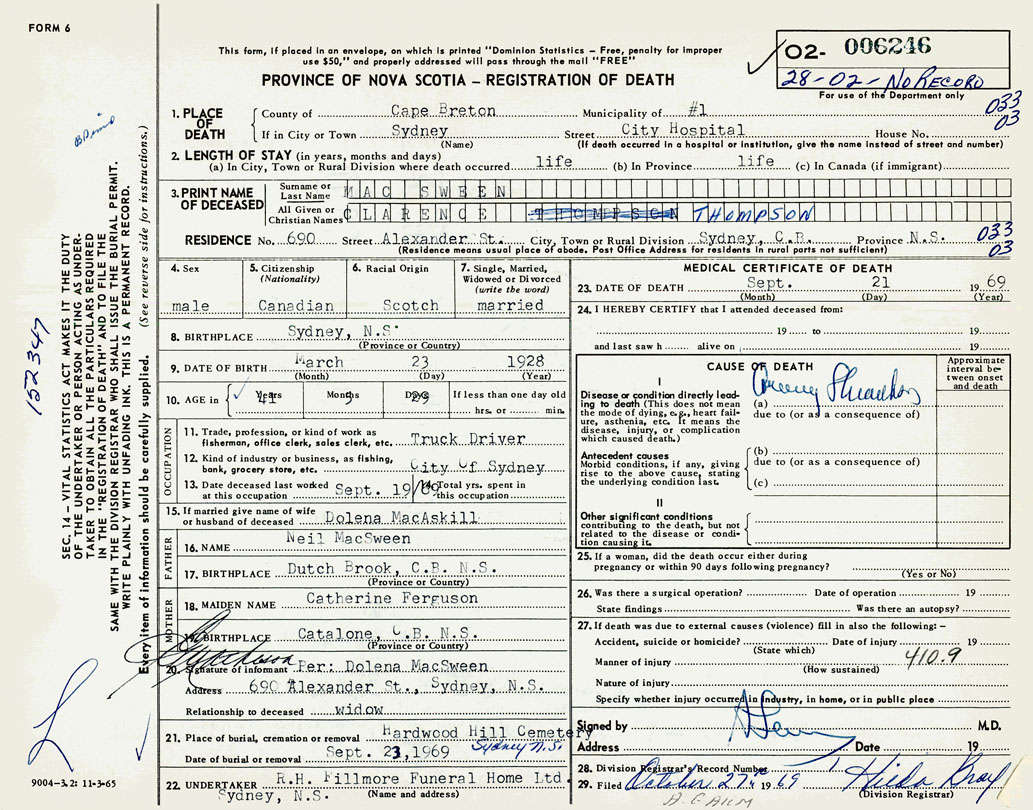 FORM 6
This form, if placed in an envelope, on which is printed "Dominion Statistics – Free, penalty for improper
use $50," and properly addressed will pass through the mail "FREE"
PROVINCE OF NOVA SCOTIA – REGISTRATION OF DEATH
O2- 006246
28-02-No Record
For use of the Department only
033
03
1. PLACE OF DEATH
County of Cape Breton Municipality of #1
If in City or Town Sydney Street City Hospital House No.
(Name) (If death occurred in a hospital or institution, give the name instead of street and number)
2. LENGTH OF STAY (in years, months and days)
(a) In City, Town or Rural Division where death occurred life (b) In Province life (c) In Canada (if immigrant)
3. PRINT NAME OF DECEASED
Surname or Last Name MAC SWEEN
All Given or Christian Names CLARENCE THOMPSON THOMPSON
RESIDENCE No. 690 Street Alexander St. City, Town or Rural Division Sydney, C.B. Province N.S.
(Residence means usual place of abode. Post Office Address for residents in rural parts not sufficient)
033
03
4. Sex
male
5. Citizenship
(Nationality)
Canadian
6. Racial Origin
Scotch
7. Single, Married,
Widowed or Divorced
(write the word)
married
8. BIRTHPLACE Sydney, N.S.
(Province or Country)
9. DATE OF BIRTH March 23 1928
(Month) (Day) (Year)
10. AGE in 41 Years Months Days 29 If less than one day old
hrs. or min.
OCCUPATION
11. Trade, profession, or kind of work as
fisherman, office clerk, sales clerk, etc. Truck Driver
12. Kind of industry or business, as fishing,
bank, grocery store, etc. City Of Sydney
13. Date deceased last worked
at this occupation Sept. 19/69
14. Total yrs. spent in
this occupation
15. If married give name of wife
or husband of deceased Dolena MacAskill
FATHER
16. NAME Neil MacSween
17. BIRTHPLACE Dutch Brook, C.B. N.S.
(Province or Country)
MOTHER
18. MAIDEN NAME Catherine Ferguson
19. BIRTHPLACE Catalone, C.B. N.S.
(Province or Country)
20. Signature of informant Per: Dolena MacSween
Address 690 Alexander St., Sydney, N.S.
Relationship to deceased widow
21. Place of burial, cremation or removal Hardwood Hill Cemetery
Sydney N.S.
Date of burial or removal Sept. 23, 1969
22. UNDERTAKER R.H. Fillmore Funeral Home Ltd.
Sydney, N.S. (Name and address)
MEDICAL CERTIFICATE OF DEATH
23. DATE OF DEATH Sept. 21 1969
(Month) (Day) (Year)
24. I HEREBY CERTIFY that I attended deceased from:
19 to 19
and last saw h alive on 19
CAUSE OF DEATH
Approximate
interval be-
tween onset
and death
I
Disease or condition directly lead-
ing to death (This does not mean
the mode of dying, e.g., heart fail-
ure, asthenia, etc. It means the
disease, injury, or complication
which caused death.)
(a)
due to (or as a consequence of)
Antecedent causes
Morbid conditions, if any, giving
rise to the above cause, stating
the underlying condition last.
(b)
due to (or as a consequence of)
(c)
II
Other significant conditions
contributing to the death, but not
related to the disease or condi-
tion causing it.
25. If a woman, did the death occur either during
pregnancy or within 90 days following pregnancy?
(Yes or No)
26. Was there a surgical operation? Date of operation 19
State findings Was there an autopsy?
27. If death was due to external causes (violence) fill in also the following:–
Accident, suicide or homicide? Date of injury 19
(State which)
410.9
Manner of injury
(How sustained)
Nature of injury
Specify whether injury occurred in Industry, in home, or in public place
Signed by M.D.
Address Date 19
28. Division Registrar's Record Number
29. Filed October 27th 1969 Hilda Gray
(Division Registrar)
152347
SEC. 14 – VITAL STATISTICS ACT MAKES IT THE DUTY
OF THE UNDERTAKER OR PERSON ACTING AS UNDER-
TAKER TO OBTAIN ALL THE PARTICULARS REQUIRED
IN THE "REGISTRATION OF DEATH" AND TO FILE THE
SAME WITH THE DIVISION REGISTRAR WHO SHALL ISSUE THE BURIAL PERMIT.
WRITE PLAINLY WITH UNFADING INK. THIS IS A PERMANENT RECORD.
Every item of information should be carefully supplied. (See reverse side for instructions.)
9004-3.2: 11-3-65